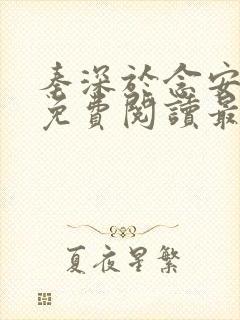 秦深於念安
免費閱讀最
夏夜星繁